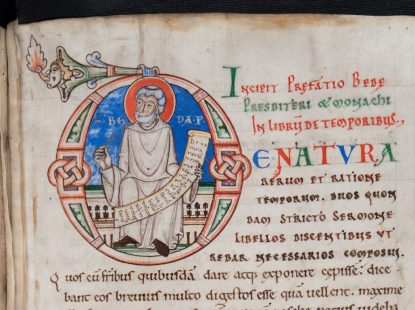 INCIPIT PREFATIO BEDE
PRESBITERI & MONACHI
IN LIBRŪ DE TEMPORIBUS.
BE DA P
DE NATURA
RERUM ET RATIONE
TEMPORUM. DUOS QUON
DAM STRICTO SERMONE
LIBELLOS DISCENTIBUS UT
REBAR NECESSARIOS COMPOSUI.
Quos cū fribus quibusdā dare atq; exponere cepisse. dice
bant eos breuius multo digestos esse quā uellent. maxime